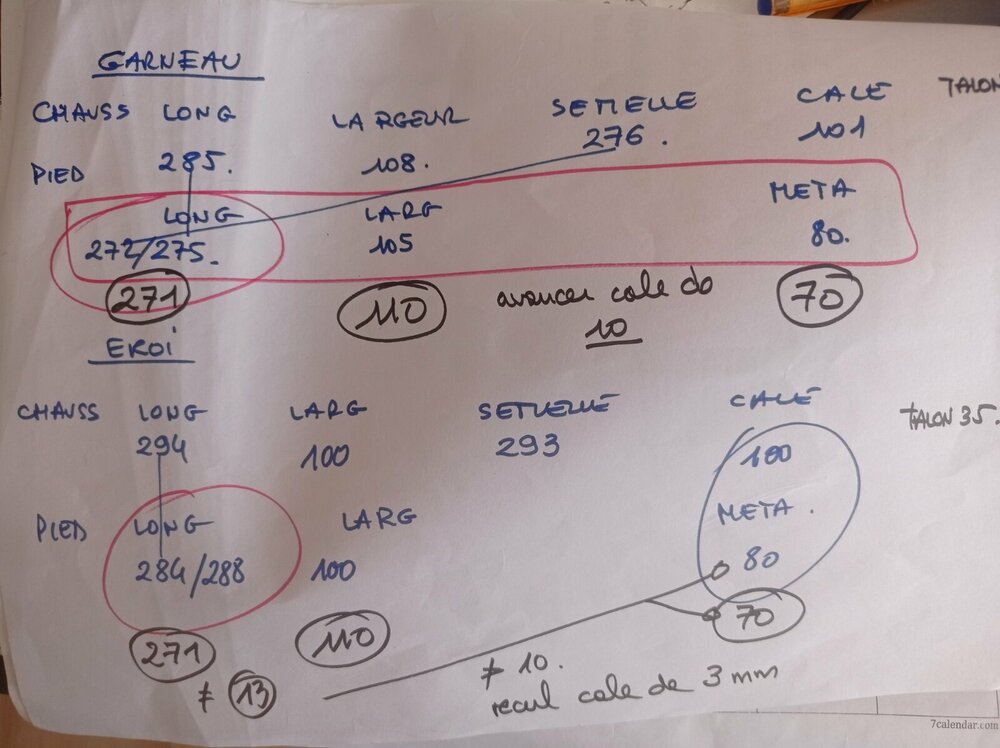 GARNEAU
CHAUSS LONG LARGEUR SEMELLE CALE TALON
285. 108. 276. 101
PIED LONG LARG META
272/275. 105 80.
271 110 avancer cale de 70
10
EROI
CHAUSS LONG LARG SEMELLE CALE TALON 35.
294 100 293 100
PIED LONG LARG META.
284/288 100 80
271 110 70
≠ 13 ≠ 10.
recul cale de 3 mm
7calendar.com